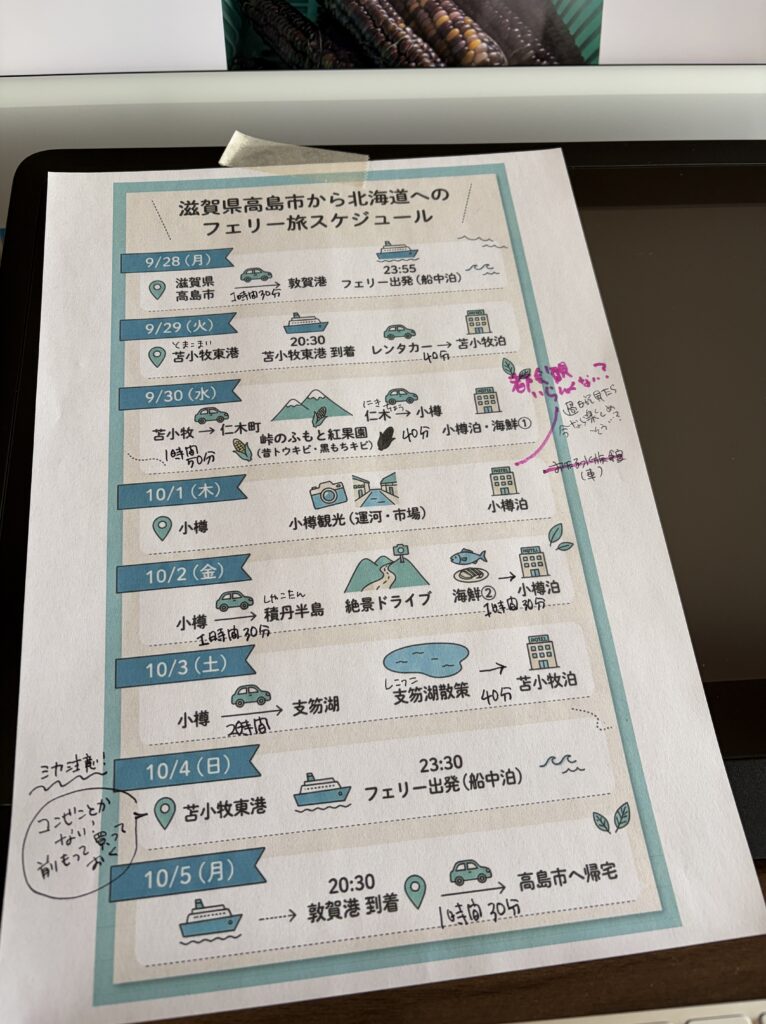 滋賀県高島市から北海道への
フェリー旅スケジュール
9/28(月)
滋賀県
高島市
1時間30分
敦賀港
23:55
フェリー出発(船中泊)
9/29(火)
とまこまい
苫小牧東港
20:30
苫小牧東港 到着
レンタカー
40分
苫小牧泊
HOTEL
9/30(水)
苫小牧 → 仁木町
1時間
50分
峠のふもと紅果園
(昔トウキビ・黒もちキビ)
にき
仁木 → 小樽
40分
HOTEL
小樽泊・海鮮①
いらんくない?
(車)
10/1(木)
小樽
小樽観光(運河・市場)
HOTEL
小樽泊
10/2(金)
小樽
1時間30分
しゃこたん
積丹半島
絶景ドライブ
海鮮②
1時間30分
HOTEL
小樽泊
10/3(土)
小樽
2時間
支笏湖
しこつこ
支笏湖散策
40分
HOTEL
苫小牧泊
10/4(日)
苫小牧東港
23:30
フェリー出発(船中泊)
注意!
コンビニとか
ない!
前もって買って
おく
10/5(月)
20:30
敦賀港 到着
1時間30分
高島市へ帰宅